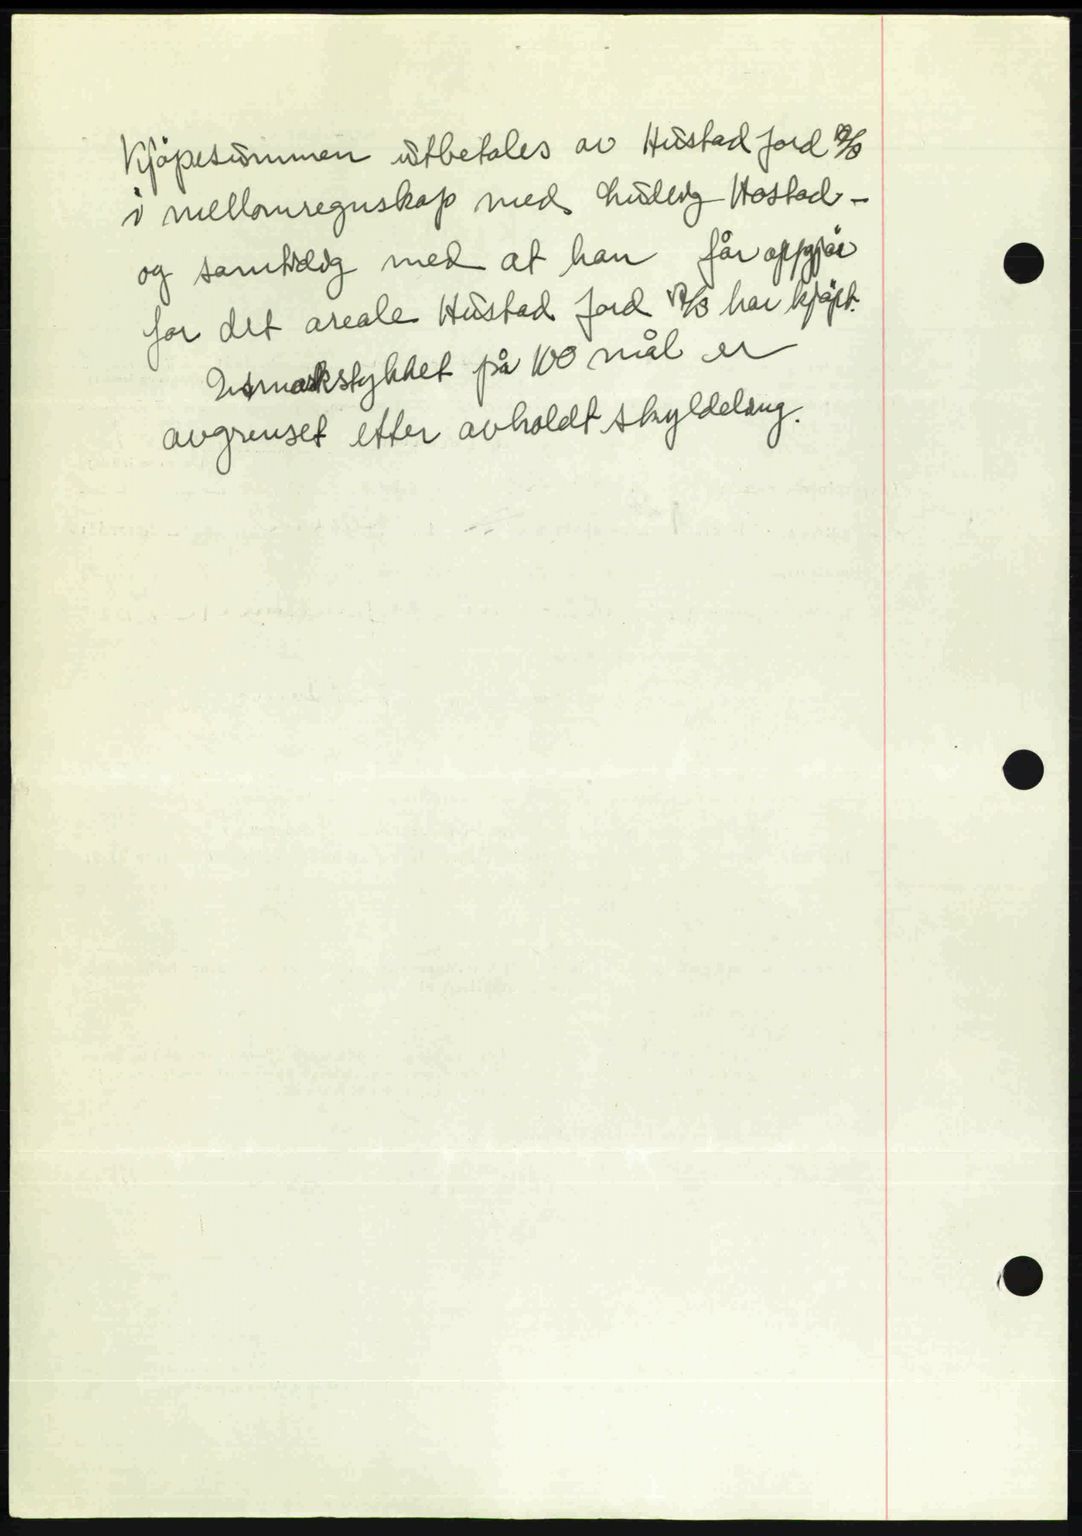 Kjöpesummen utbetales av Hustad Jord A/S
i mellomregnskap med Ludvig Hostad -
og samtidig med at han får oppgjør
for det areale Hustad Jord A/S har kjöpt.
Utmarkstykket på 100 mål er
avgrenset etter avholdt skyldeling.